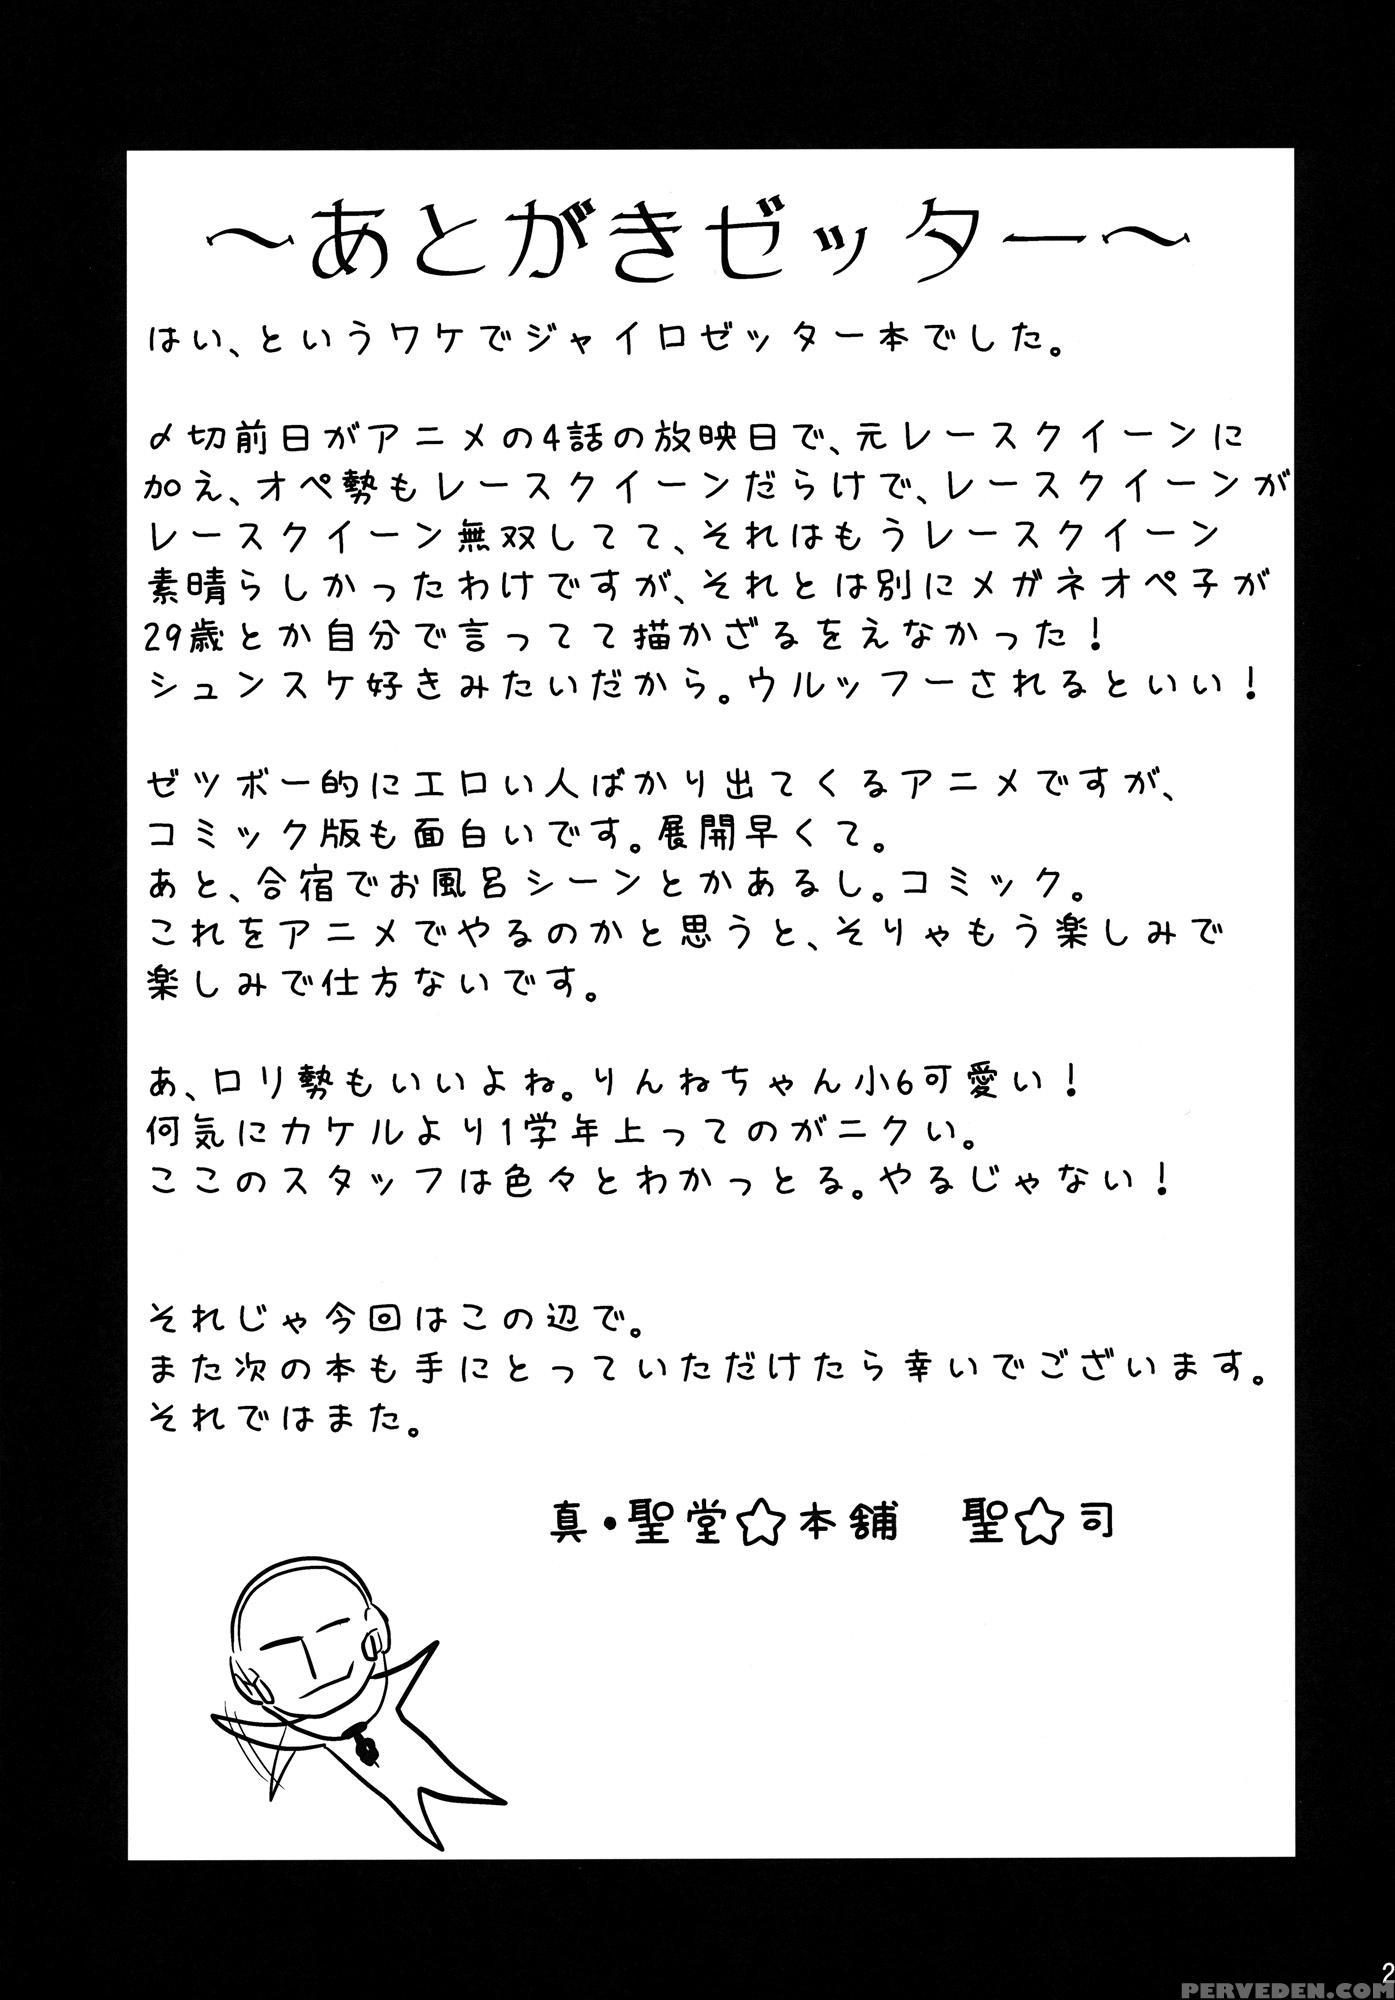 ～あとがきゼッター～
はい、というワケでジャイロゼッター本でした。
〆切前日がアニメの4話の放映日で、元レースクイーンに
加え、オペ勢もレースクイーンだらけで、レースクイーンが
レースクイーン無双してて、それはもうレースクイーン
素晴らしかったわけですが、それとは別にメガネオペ子が
29歳とか自分で言ってて描かざるをえなかった！
シュンスケ好きみたいだから。ウルッフーされるといい！
ゼツボー的にエロい人ばかり出てくるアニメですが、
コミック版も面白いです。展開早くて。
あと、合宿でお風呂シーンとかあるし。コミック。
これをアニメでやるのかと思うと、そりゃもう楽しみで
楽しみで仕方ないです。
あ、ロリ勢もいいよね。りんねちゃん小6可愛い！
何気にカケルより1学年上ってのがニクい。
ここのスタッフは色々とわかっとる。やるじゃない！
それじゃ今回はこの辺で。
また次の本も手にとっていただけたら幸いでございます。
それではまた。
真・聖堂☆本舗　聖☆司
2
PERVEDEN.COM